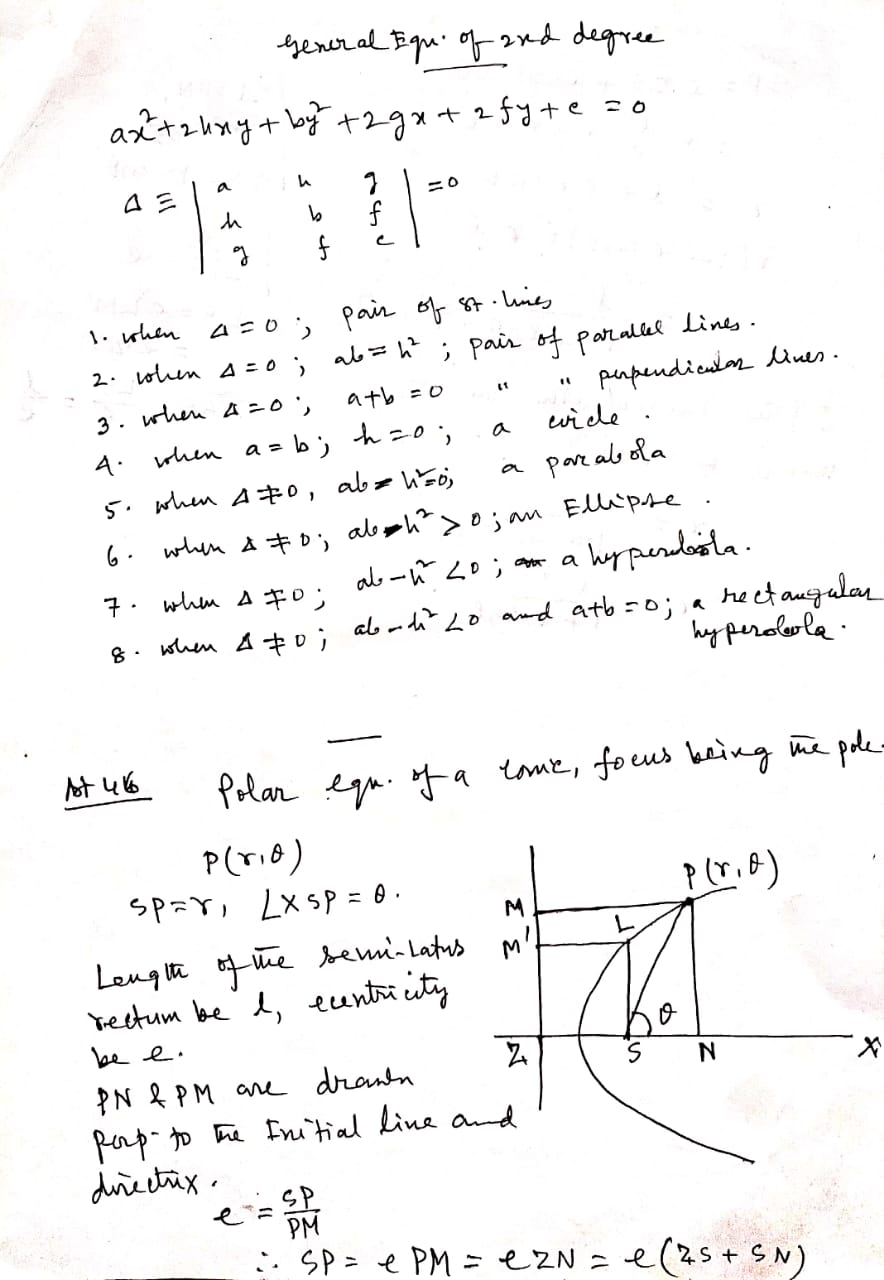 General Equ. of 2nd degree
ax²+2hxy+by²+2gx+2fy+c=0
Δ ≡ | a h g | =0
| h b f |
| g f c |
1. when Δ=0; pair of st. lines
2. when Δ=0; ab=h²; pair of parallel lines.
3. when Δ=0; a+b=0 " " perpendicular lines.
4. when a=b; h=0; a circle.
5. when Δ≠0, ab-h²=0; a parabola
6. when Δ≠0; ab-h²>0; an Ellipse.
7. when Δ≠0; ab-h²<0; a hyperbola.
8. when Δ≠0; ab-h²<0 and a+b=0; a rectangular
hyperbola.
Polar equ. of a conic, focus being the pole.
P(r,θ)
SP=r, ∠XSP=θ.
Length of the semi-Latus
rectum be l, eccentricity
be e.
PN & PM are drawn
perp. to the Initial line and
directrix.
P(r,θ)
M
L
M'
θ
Z S N X
e = SP/PM
∴ SP = e PM = e ZN = e(ZS+SN)